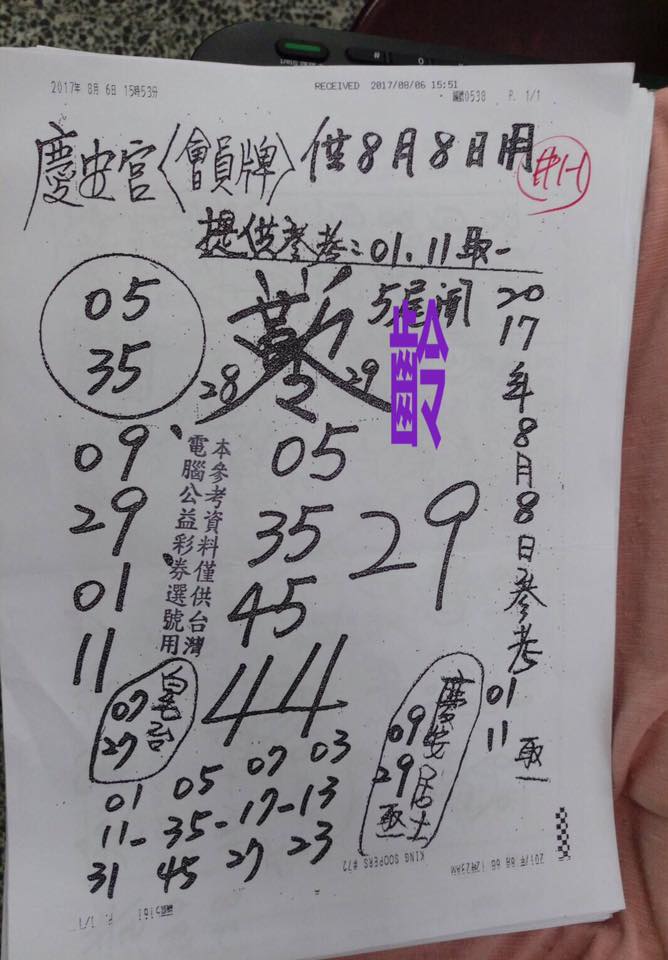 2017年 8月 6日 15時53分
RECEIVED 2017/08/06 15:51
0538 P. 1/1
慶安宮〈會員牌〉供8月8日用
提供參考:01.11取一
5尾開
05
35
28
29
齡
2017年8月8日參考
01
11取一
09
29
01
11
本參考資料僅供台灣
電腦公益彩券選號用
05
35
45
44
29
07
27
慶安居士
09
29取
01 05 07 03
11-35-17-13
31 45 27 23
KING SOOPERS #73
2017年 8月 6日 12時23AM
P. 1/1